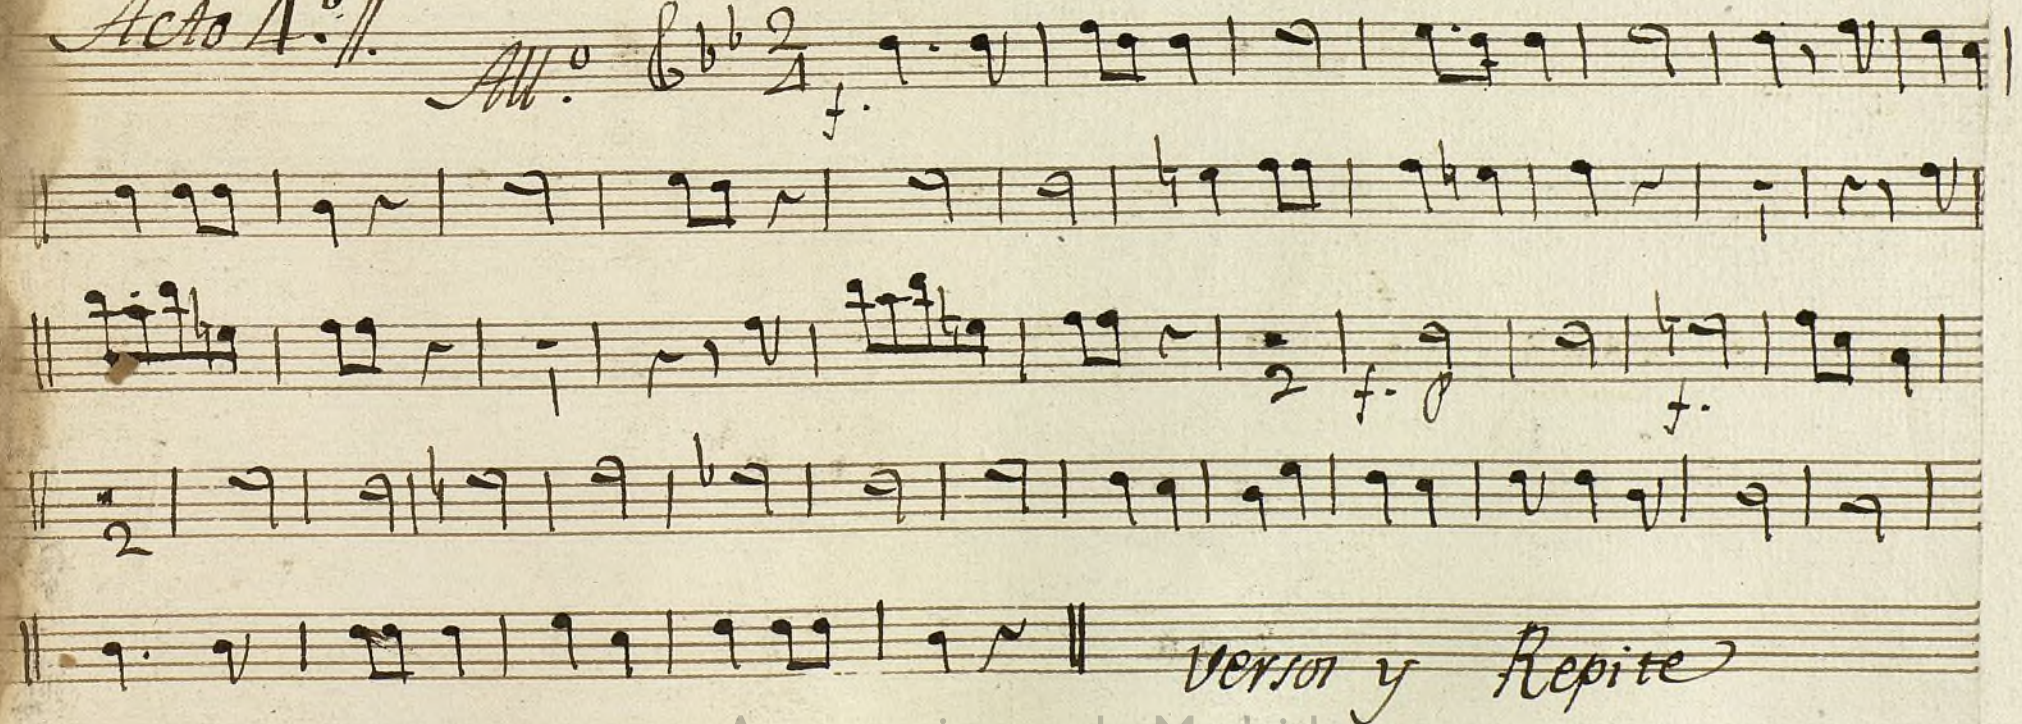 Acto 4.º //.
All.º 2/4
f.
1
1 2 f. p f.
2
versos y Repite